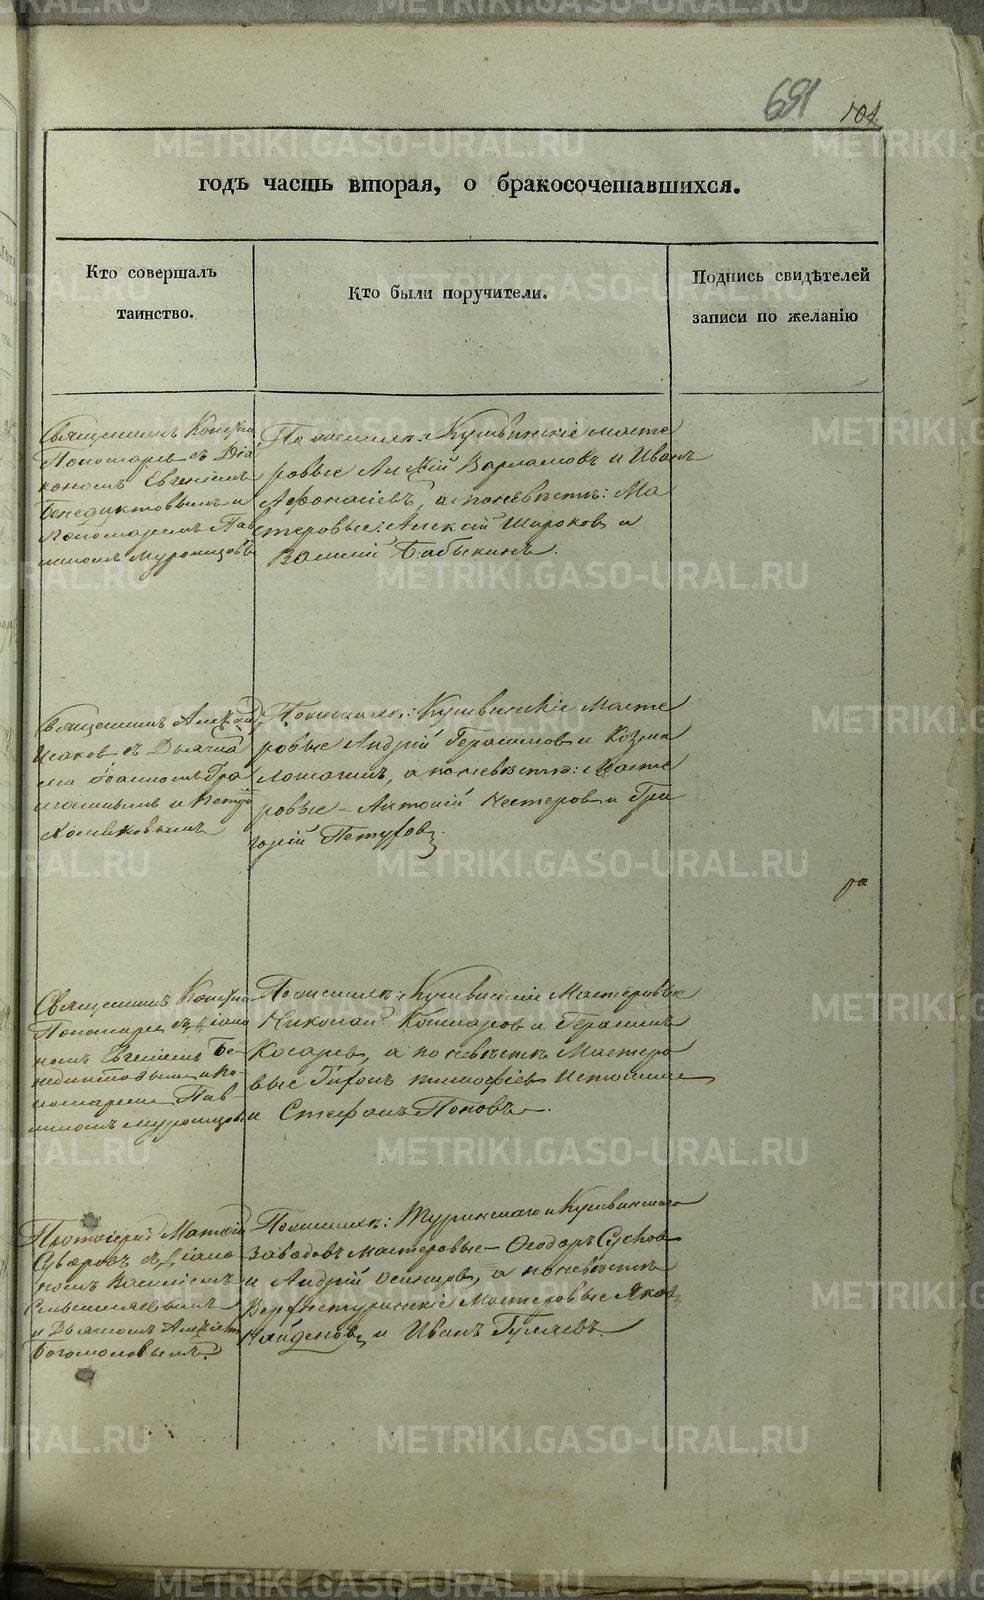 691 104
годъ часть вторая, о бракосочетавшихся.
Кто совершалъ
таинство.
Кто были поручители.
Подпись свидѣтелей
записи по желанію
Священникъ
Пономаревъ съ Діа
кономъ Евгеніемъ
Бенедиктовымъ и
Пономаремъ Пав
линомъ Муромцовы
По женихѣ: Кушвинскіе масте
ровые Алексѣй Варламовъ и Иванъ
Афонасіевъ, а по невѣстѣ: Ма
стеровые: Алексѣй Широковъ и
Василій Бабыкинъ.
Священникъ
Исаковъ съ Дьячка
ми Іоанномъ
и Петр
По женихѣ: Кушвинскіе Масте
ровые Андрей Герасимовъ и Козма
а по невѣстѣ: Масте
ровые – Антоній Нестеровъ и Гри
горій Петуховъ.
Священникъ
Пономаревъ съ Діако
номъ Евгеніемъ Бе-
недиктовымъ и По-
номаремъ Пав-
линомъ Муромцовы
По женихѣ: Кушвинскіе Мастеровые
Николай Кошкаровъ и Герасимъ
Косаревъ, а по невѣстѣ Мастеро
вые Тимофѣевъ
и Стефанъ Поповъ.
ра
Протоіерей Матѳей
Суворовъ съ Діако
номъ Василіемъ
и Дьячкомъ
Богомоловымъ.
По женихѣ: Туринскаго и Кушвинскаго
Заводовъ мастеровые – Ѳеодоръ Суховъ
и Андрей а по невѣстѣ
Верхнетуринскіе Мастеровые Яковъ
Найденовъ и Иванъ Гуляевъ.
METRIKI.GASO-URAL.RU